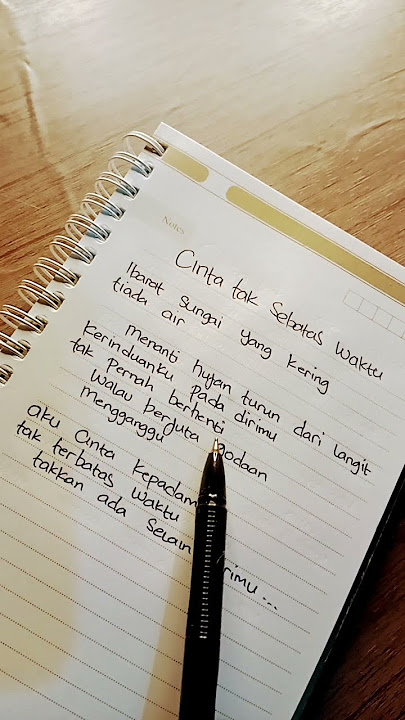 Notes
Cinta tak Sebatas Waktu
Ibarat Sungai yang Kering
tiada air
Menanti hujan turun dari langit
Kerinduanku pada dirimu
tak Pernah berhenti
Walau berjuta godaan
Mengganggu
aku Cinta kepadam
tak terbatas Waktu
takkan ada Selain rimu ...